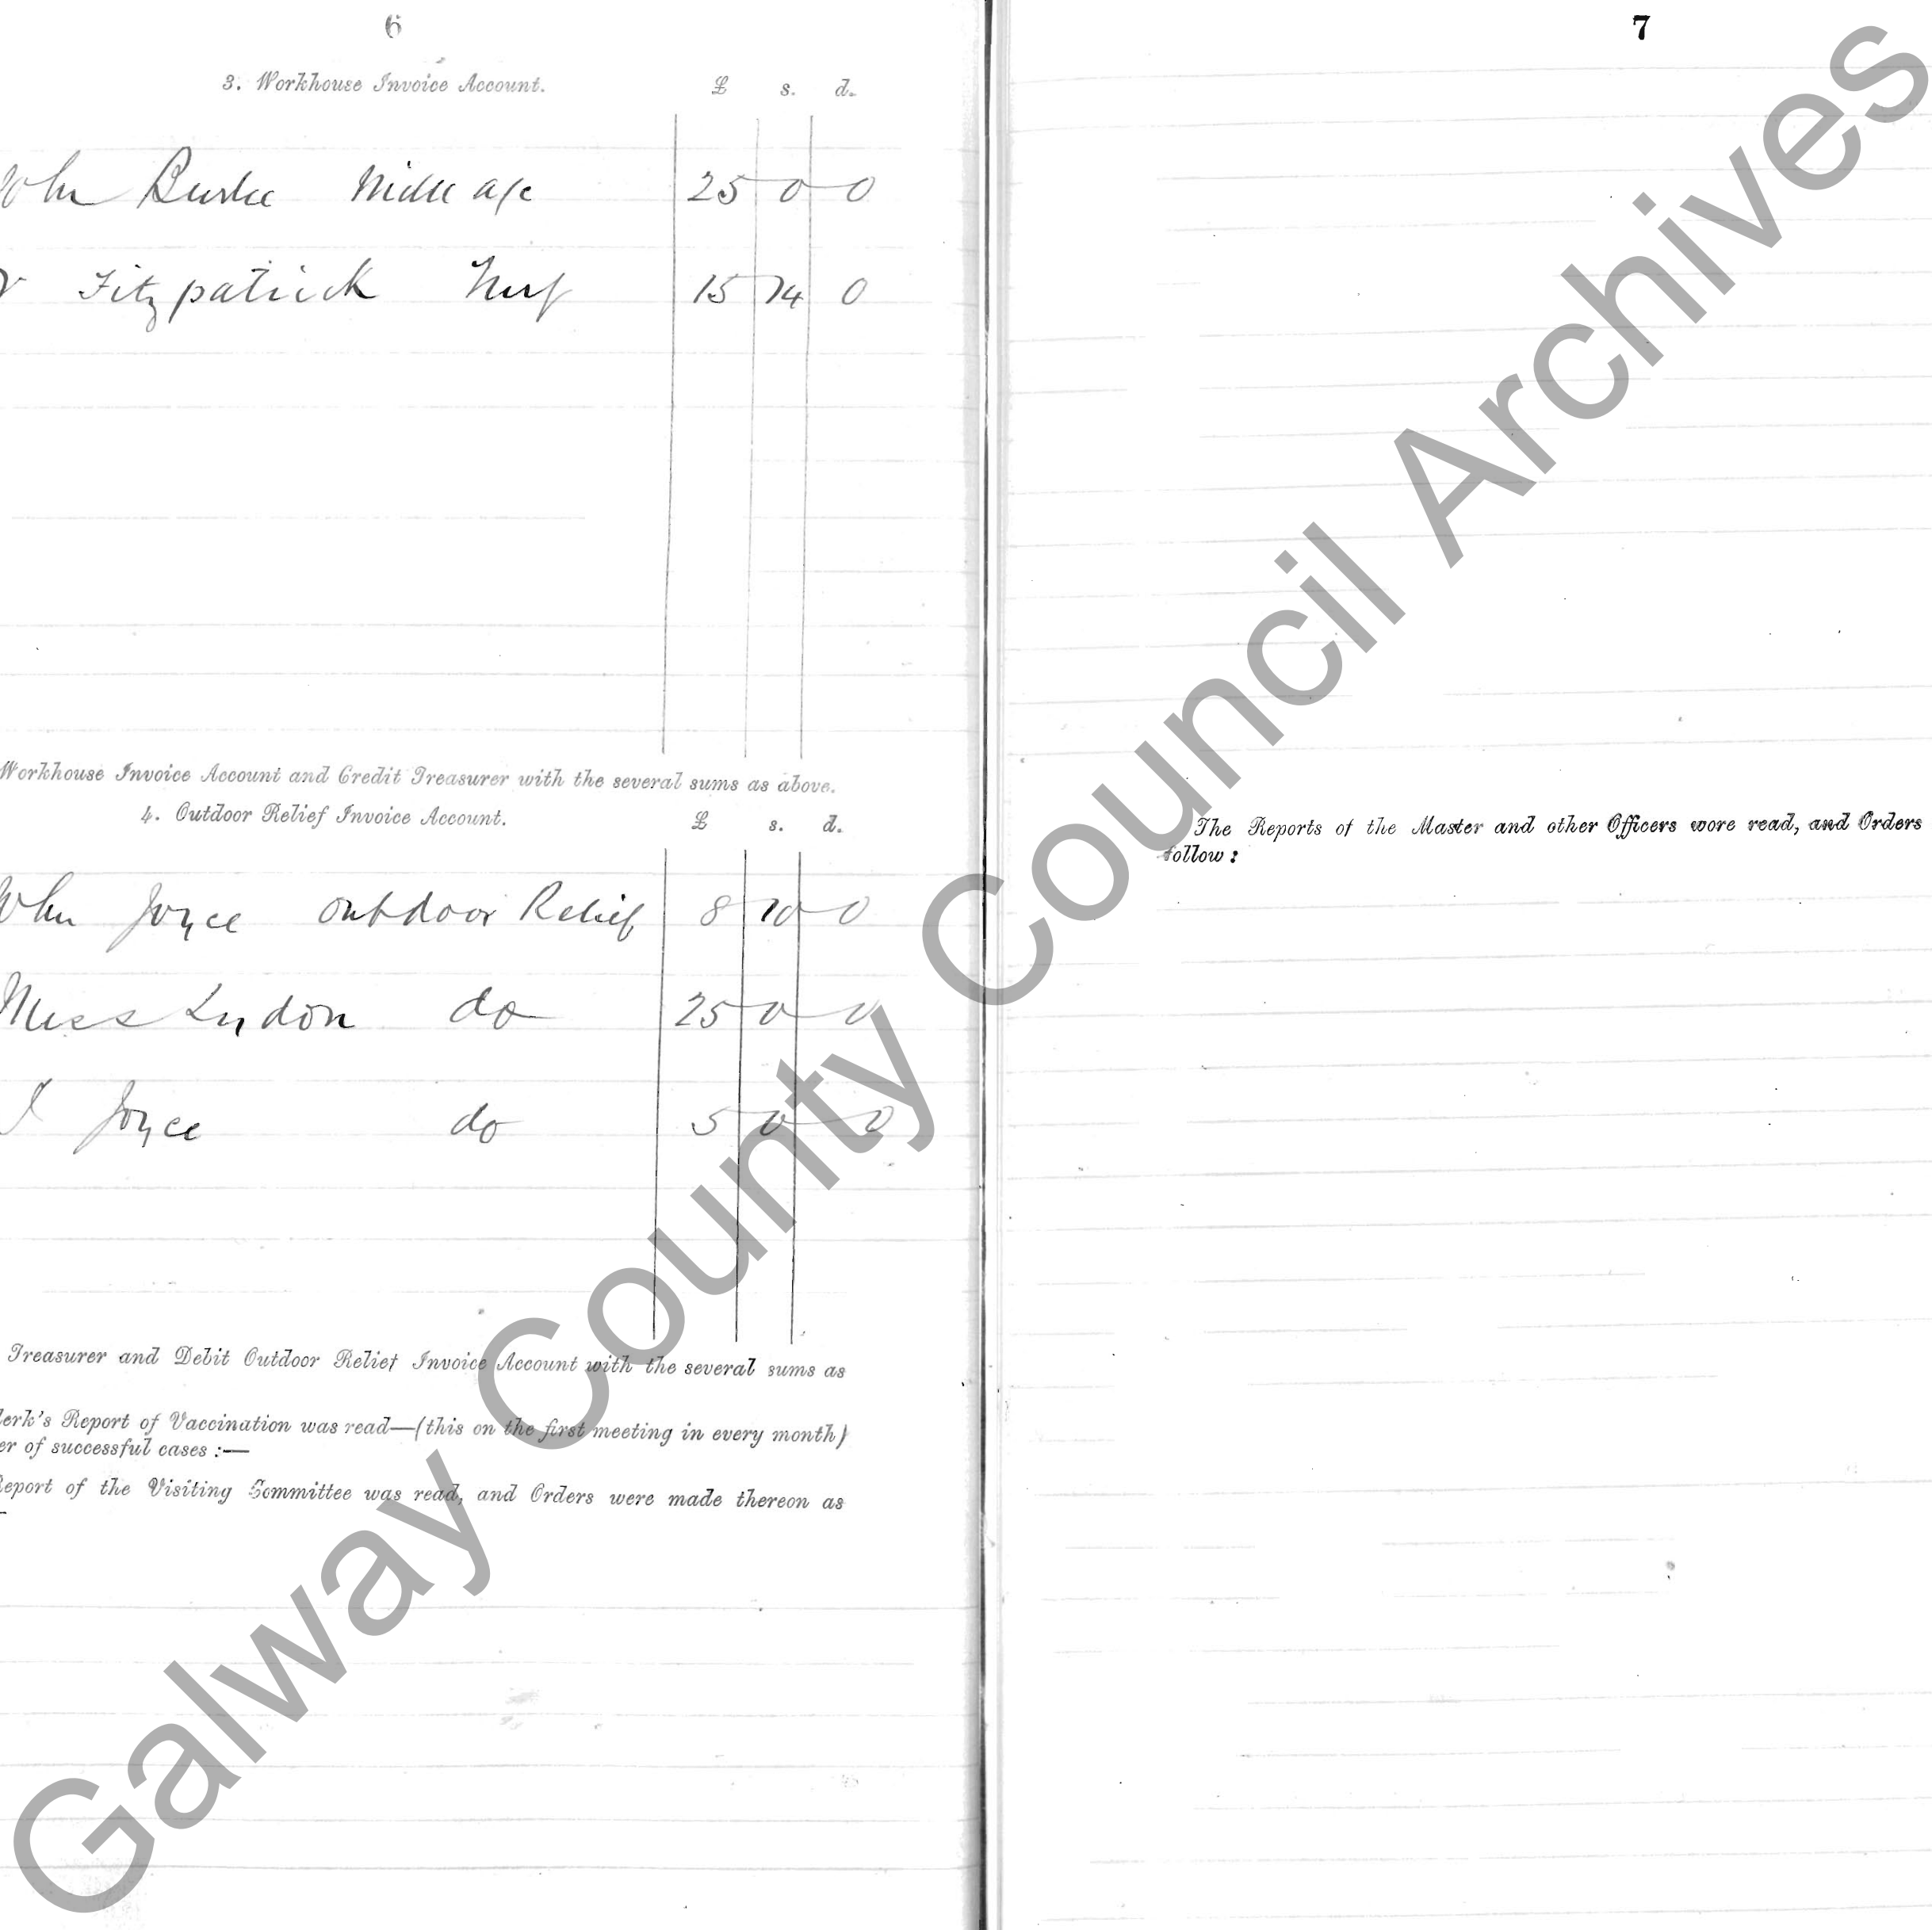 6
3. Workhouse Invoice Account. £ s. d.
ohn Burke Milk a/c 25 0 0
Fitzpatrick 15 14 0
Workhouse Invoice Account and Credit Treasurer with the several sums as above.
4. Outdoor Relief Invoice Account. £ s. d.
ohn Joyce outdoor Relief 8 10 0
Miss Lydon do 25 0 0
Joyce do 5 0 0
Treasurer and Debit Outdoor Relief Invoice Account with the several sums as
lerk's Report of Vaccination was read—(this on the first meeting in every month)
er of successful cases :—
Report of the Visiting Committee was read, and Orders were made thereon as
7
The Reports of the Master and other Officers wore read, and Orders
follow :
Galway County Council Archives